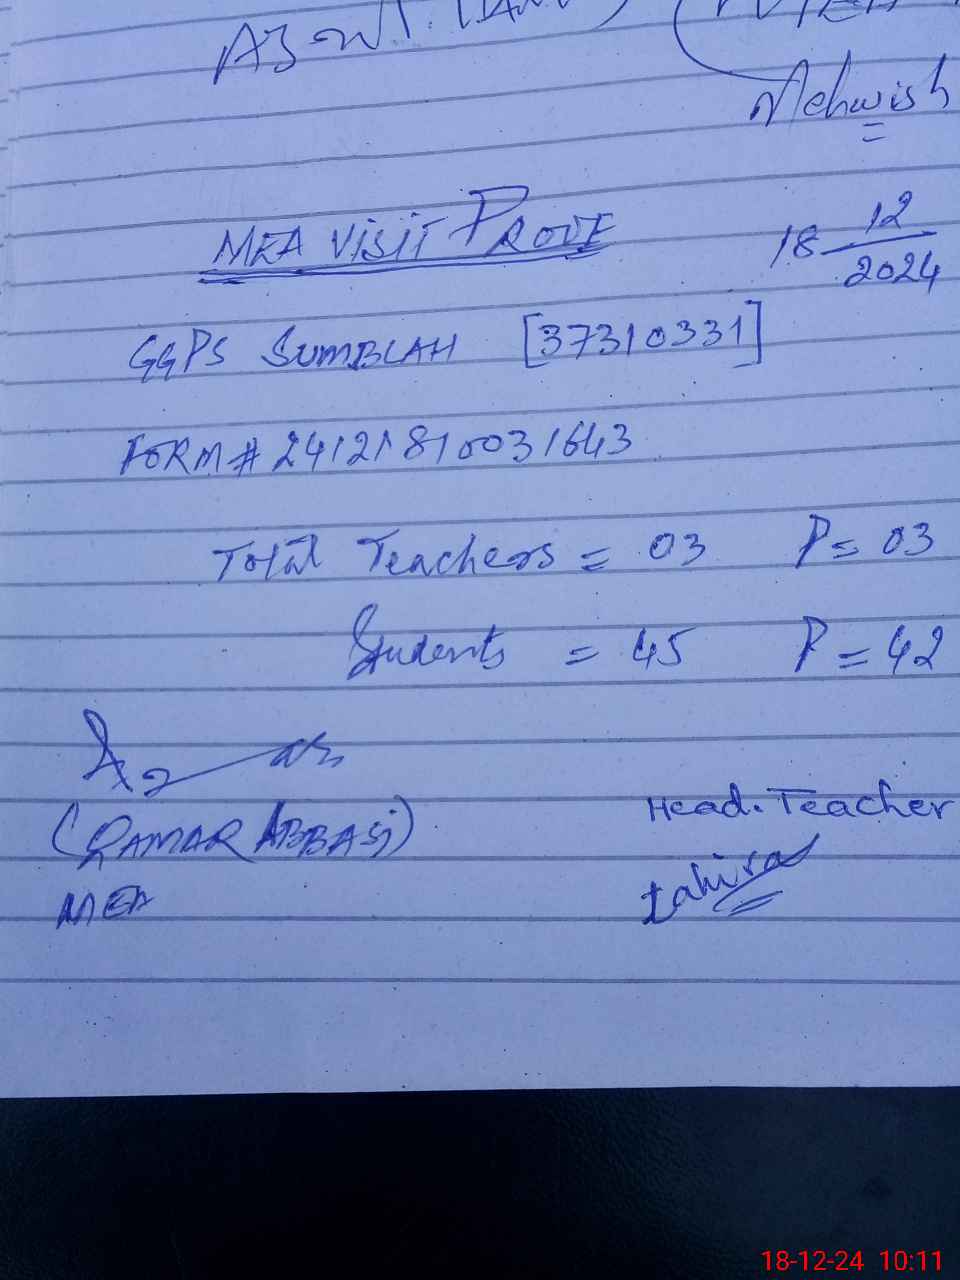 Mehwish
MEA VISIT PROVE
18-12/2024
GGPS SUMBLAH [37310331]
FORM# 241218100031643
Total Teachers = 03 P= 03
Students = 45 P = 42
(QAMAR ABBASI)
MEA
Head. Teacher
tahira
18-12-24 10:11